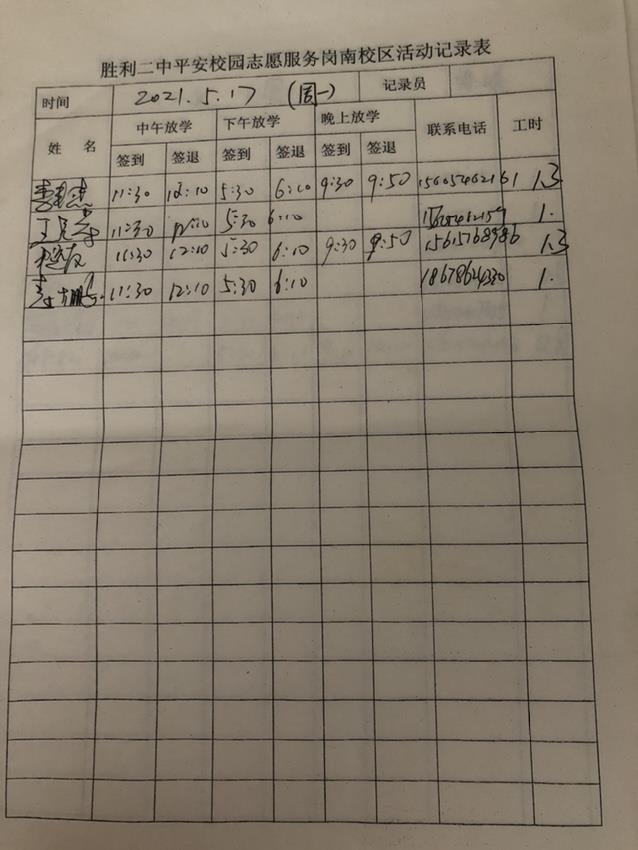 胜利二中平安校园志愿服务岗南校区活动记录表
时间 2021.5.17 (周一) 记录员
姓 名 中午放学 下午放学 晚上放学 联系电话 工时
签到 签退 签到 签退 签到 签退
11:30 12:10 5:30 6:10 9:30 9:50 15605462161 1.3
11:30 12:10 5:30 6:10 1.
11:30 12:10 5:30 6:10 9:30 9:50 15615768986 1.3
11:30 12:10 5:30 6:10 1.